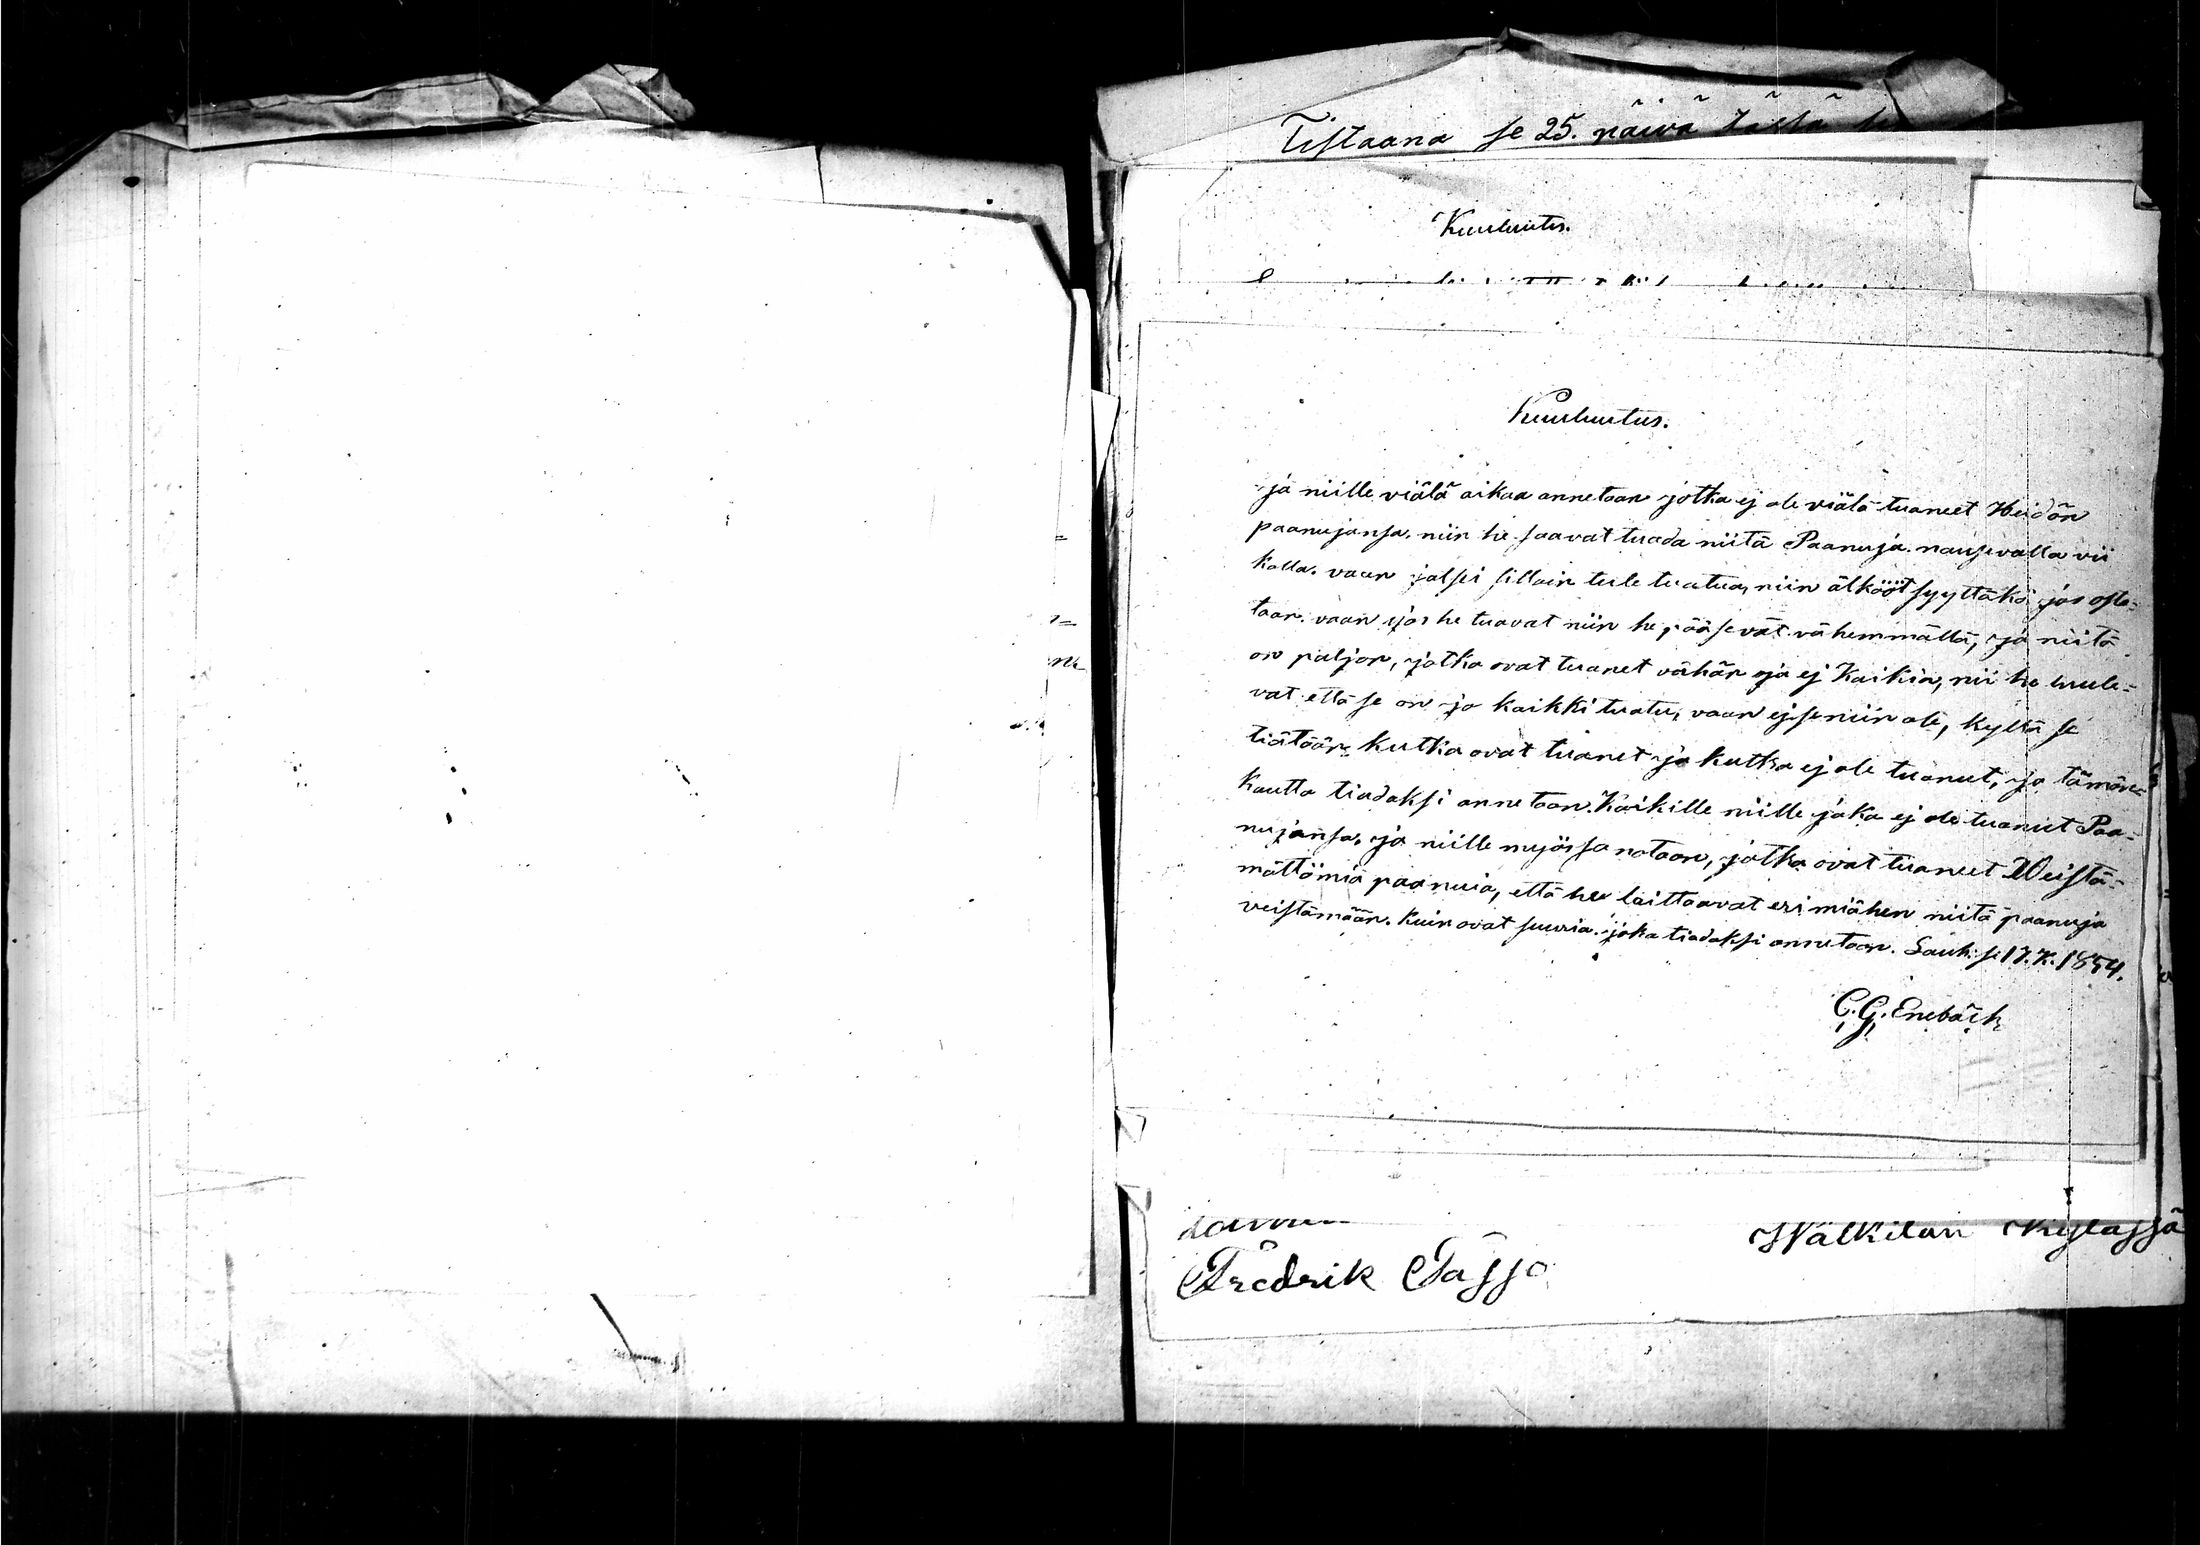 Tistaana se 25. päivä tästä
Kuulutus.
Kuulutus.
ja niille viälä aikaa annetaan jotka ej ole viälä tuaneet Heidän
paanujansa. niin he saavat tuada niitä Paanuja nausevalla vii
kolla. vaan jalsei silloin tule tuatua, niin älkööt syyttäkö jos oste-
taan. vaan jos he tuavat niin he pääsevät vähemmällä, ja niitä
on paljon, jotka ovat tuanet vähän ja ej Kaikia, nii he luule-
vat että se on jo kaikki tuatu, vaan ej se niin ole, kyllä se
tiätään kutka ovat tuanet ja kutka ej ole tuanut, ja tämän
kautta tiadaksi annetaan. Kaikille niille joka ej ole tuanut Paa-
nujansa, ja niille myös sanotaan, jotka ovat tuaneet Weistä-
mättömiä paanuia, että he laittaavat esimiähen niitä paanuja
veistämään. Kuin ovat suuria. joka tiadaksi annetaan. Sauk. se 17. X. 1854.
C. G. Enebäck
Wälkilän Kylässä
Fredrik Tässo